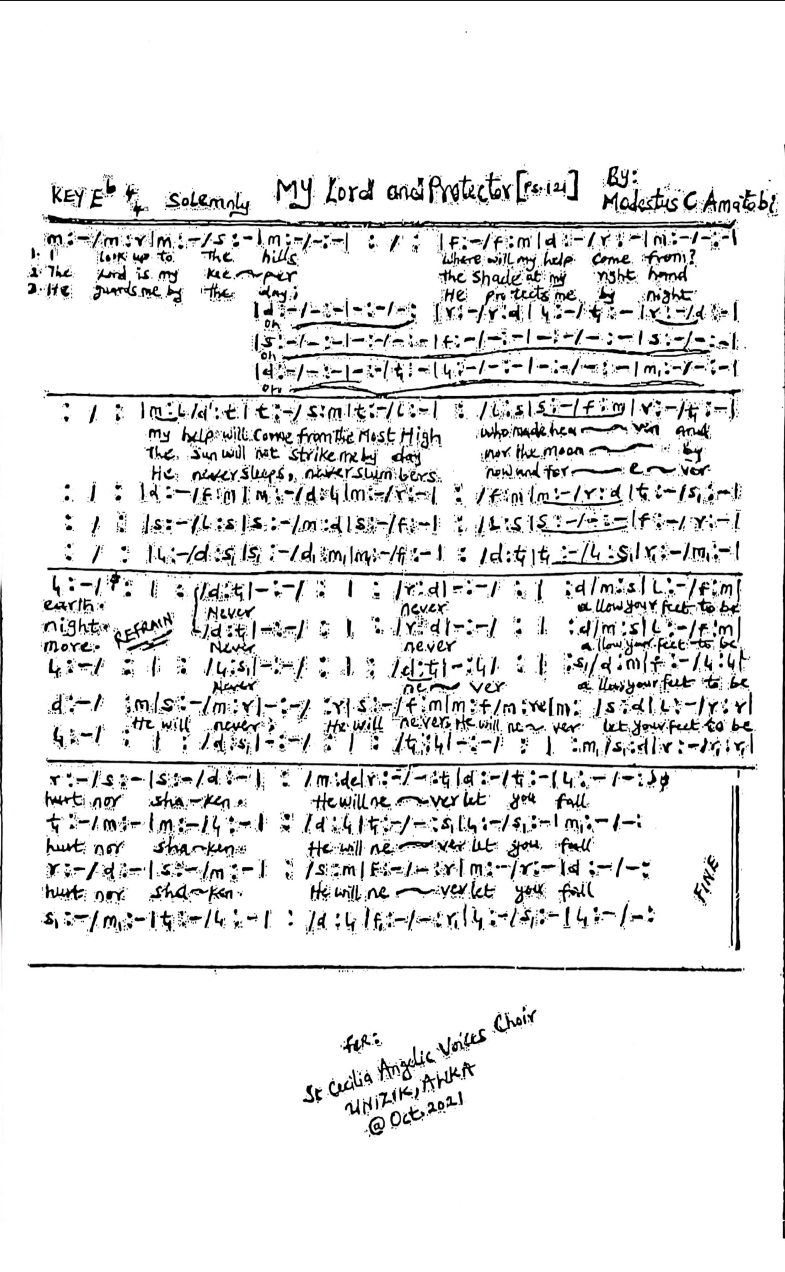 KEY E♭ 4/4 Solemnly My Lord and Protector [Ps. 121] By: Modestus C Amatobi
m:-/m:r|m:-/s:-|m:-/-:-| : / : |f:-/f:m|d:-/r:-|m:-/-:-|
1. I look up to The hills where will my help come from?
2. The Lord is my kee~per the Shade at my right hand
3. He guards me by the day; He protects me by night
|d:-/-:-|-:-/-: |r:-/r:d|l,:-/t,:-|r:-/d:-|
oh
|s:-/-:-|-:-/-:-|f:-/-:-|-:-/-:-|s:-/-:-|
oh
|d:-/-:-|-:-/t,:-|l,:-/-:-|-:-/-:-|m,:-/-:-|
oh
: / : |m:l/d':t|t:-/s:m|t:-/l:-| : /l:s|s:-/f:m|r:-/t,:-|
my help will Come from The Most High who made hea~ven and
The Sun will not Strike me by day nor the moon ~ by
He never sleeps, never slumbers now and for~e~ver
: / : |d:-/f:m|m:-/d:l,|m:-/r:-| : /f:m|m:-/r:d|t,:-/s,:-|
: / : |s:-/l:s|s:-/m:d|s:-/f:-| : /l:s|s:-/-:-|f:-/r:-|
: / : |l,:-/d:s,|s,:-/d:m,|m,:-/f,:-| : /d:t,|t,:-/l,:s,|r,:-/m,:-|
l,:-/ : | : /d:t,|-:-/ : | : /r:d|-:-/ : | :d/m:s|l:-/f:m|
earth. Never never allow your feet to be
night. REFRAIN /d:t,|-:-/ : | : /r:d|-:-/ : | :d/m:s|l:-/f:m|
more. Never never allow your feet to be
l,:-/ : | : /l,:s,|-:-/ : | : /d:t,|-:l,/ : | :s,/d:m|f:-/l,:l,|
Never ne~ver allow your feet to be
d:-/ :m|s:-/m:r|-:-/ :r|s:-/f:m|m:f/m:re|m: /s:d|l:-/r:r|
He will never; He will never, He will ne~ver let your feet to be
l,:-/ : | : /d:s,|-:-/ : | : /t,:l,|-:-/ : | :m,/s,:d|r:-/r,:r,|
r:-/s:-|s:-/d:-| : /m:de|r:-/-:t,|d:-/t,:-|l,:-/-:
hurt nor sha~ken. He will ne~ver let you fall
t,:-/m:-|m:-/l,:-| : /d:l,|t,:-/-:s,|l,:-/s,:-|m,:-/-:
hurt nor sha~ken. He will ne~ver let you fall
r:-/d:-|s:-/m:-| : /s:m|f:-/-:r|m:-/r:-|d:-/-:
hurt nor sha~ken. He will ne~ver let you fall
s,:-/m,:-|t,:-/l,:-| : /d:l,|f,:-/-:r,|l,:-/s,:-|l,:-/-:
FINE
FOR:
St Cecilia Angelic Voices Choir
UNIZIK, AWKA
@ Oct. 2021